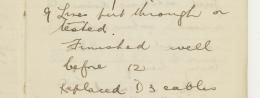 9 Lines put through or
tested.
Finished well
before 12
Replaced D3 cables